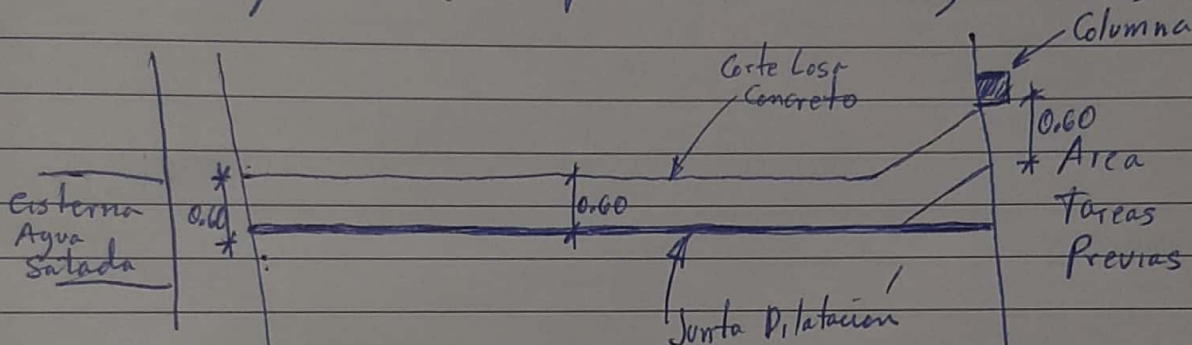 Columna
Corte Losa
Concreto
0.60
Area
Tareas
Previas
Cisterna
Agua
Salada
0.60
0.60
Junta Dilatación